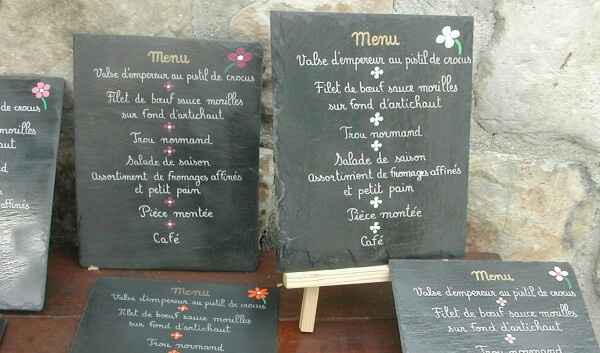 de crocus
morilles
affinés
Menu
Valse d'empereur au pistil de crocus
Filet de bœuf sauce morilles
sur fond d'artichaut
Trou normand
Salade de saison
Assortiment de fromages affinés
et petit pain
Pièce montée
Café
Menu
Valse d'empereur au pistil de crocus
Filet de bœuf sauce morilles
sur fond d'artichaut
Trou normand
Salade de saison
Assortiment de fromages affinés
et petit pain
Pièce montée
Café
Menu
Valse d'empereur au pistil de crocus
Filet de bœuf sauce morilles
sur fond d'artichaut
Trou normand
Menu
Valse d'empereur au pistil de crocus
Filet de bœuf sauce morilles
sur fond d'artichaut
Trou normand